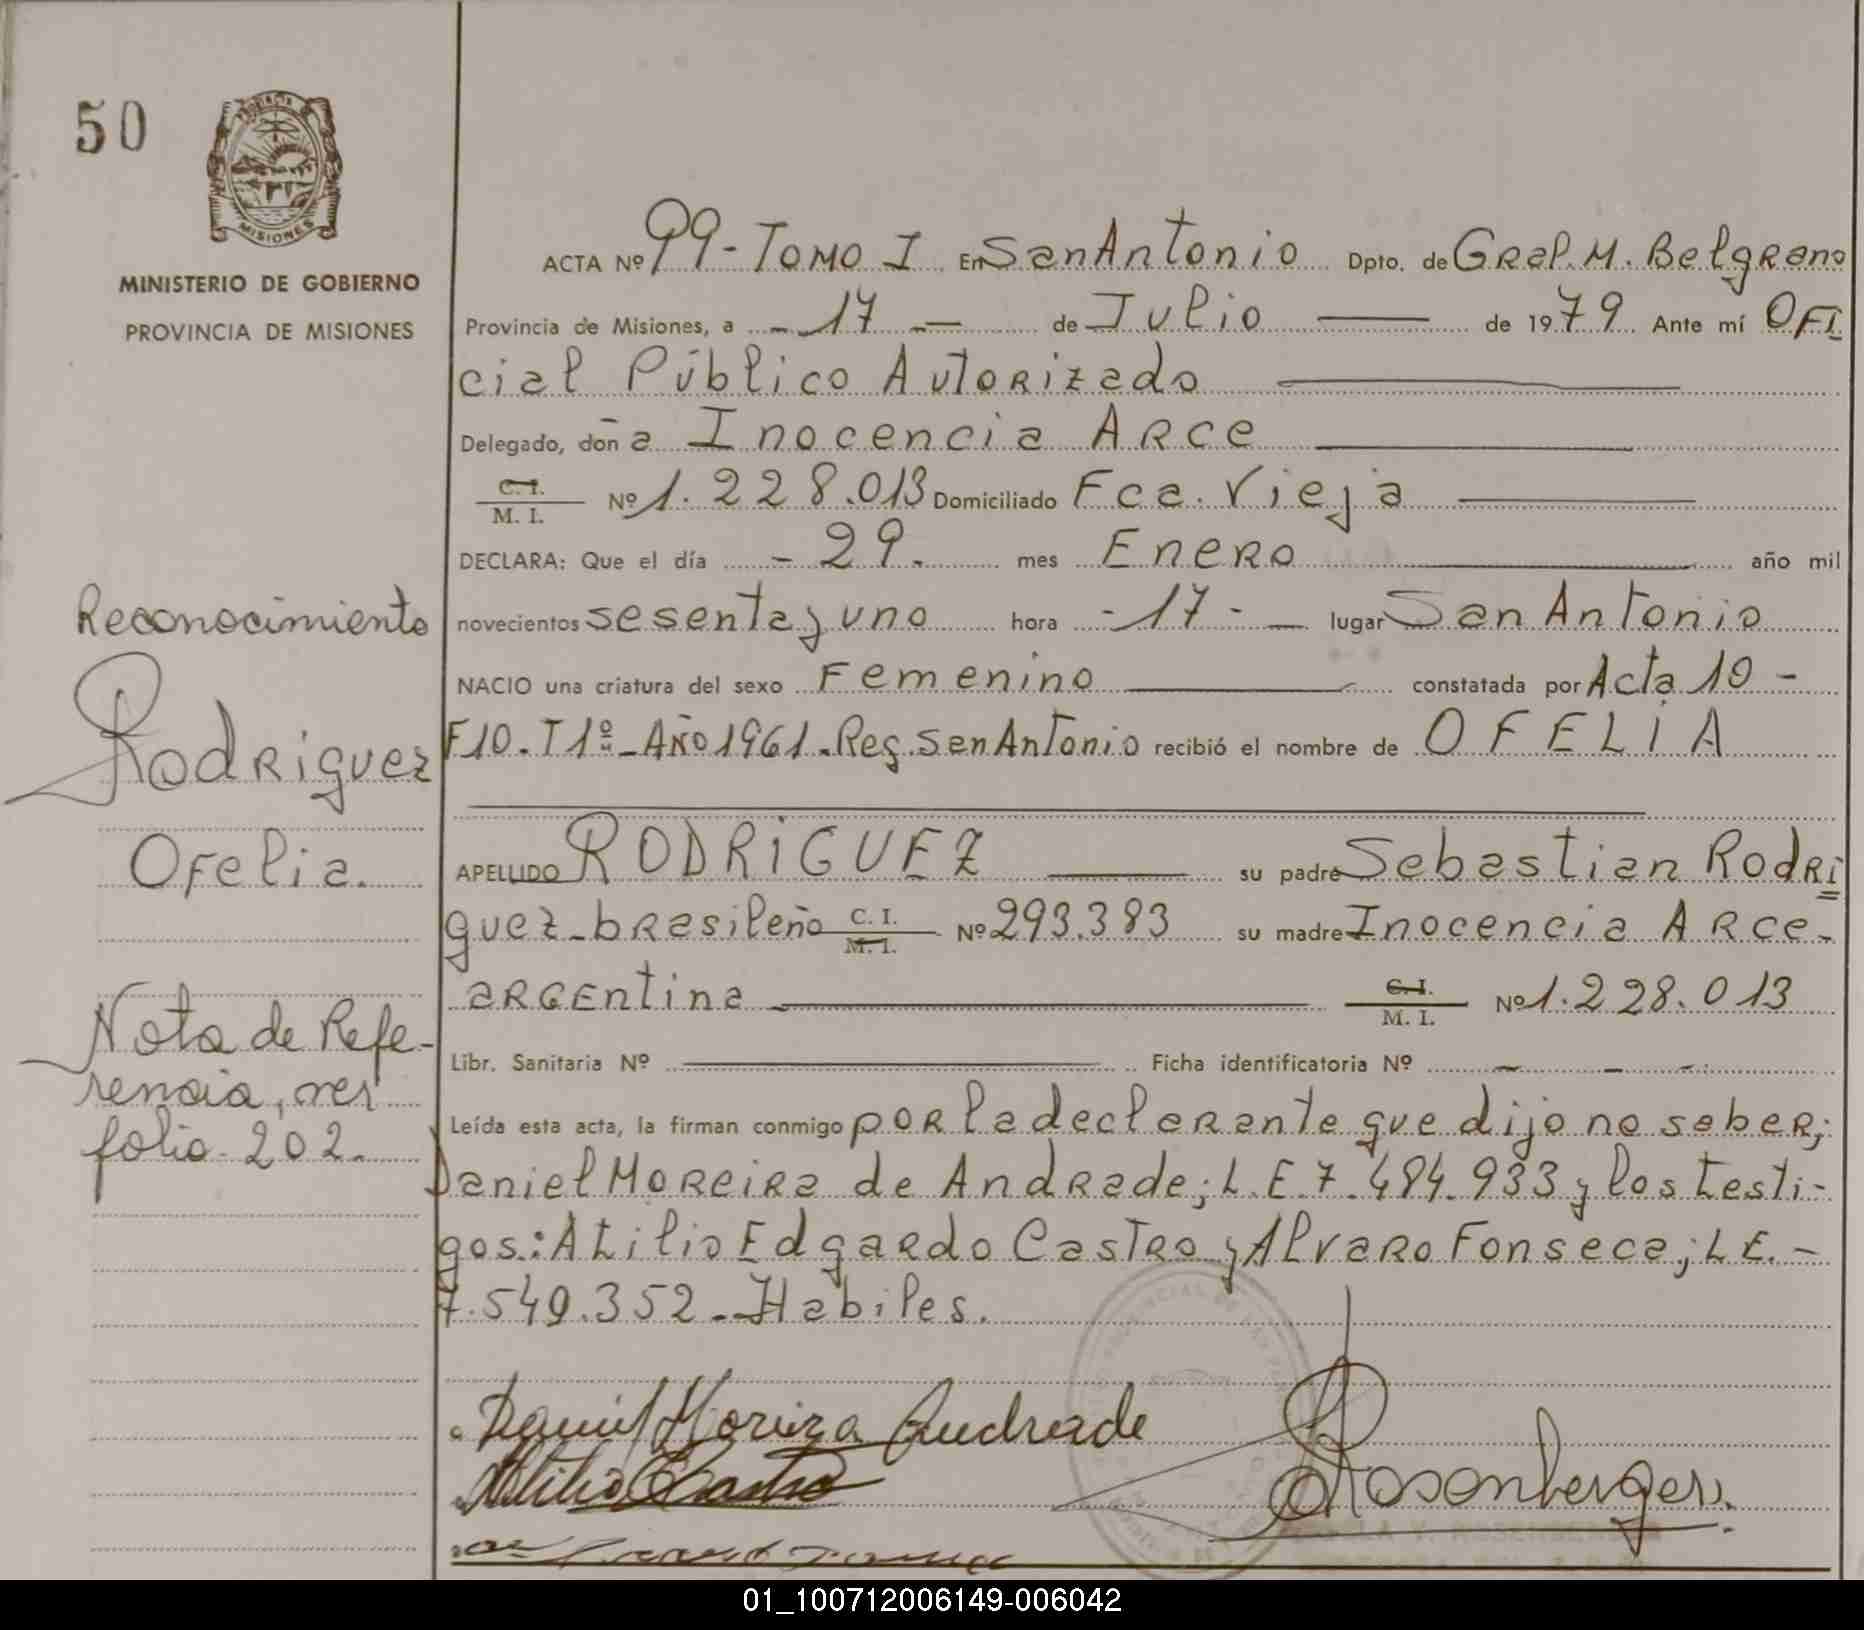 50
PROVINCIA DE
MISIONES
MINISTERIO DE GOBIERNO
PROVINCIA DE MISIONES
Reconocimiento
Rodriguez
Ofelia.
Nota de Refe-
rencia, ver
folio 202.
ACTA Nº 99 - Tomo I En San Antonio Dpto. de Gral. M. Belgrano
Provincia de Misiones, a - 17 - de Julio de 1979 Ante mí Ofi
cial Público Autorizado
Delegado, doña Inocencia Arce
C. I.
M. I. Nº 1.228.013 Domiciliado Fca. Vieja
DECLARA: Que el día - 29. mes Enero año mil
novecientos sesenta y uno hora - 17 - lugar San Antonio
NACIO una criatura del sexo Femenino constatada por Acta 10 -
F10. T1º - Año 1961. Reg. San Antonio recibió el nombre de OFELIA
APELLIDO RODRIGUEZ su padre Sebastian Rodri
guez - brasileño C. I. M. I. Nº 293.383 su madre Inocencia Arce -
argentina C. I. M. I. Nº 1.228.013
Libr. Sanitaria Nº Ficha identificatoria Nº
Leída esta acta, la firman conmigo por la declarante que dijo no saber;
Daniel Moreira de Andrade; L.E. 7.484.933 y los testi-
gos: Atilio Edgardo Castro y Alvaro Fonseca; L.E. -
7.540.352 - Habiles.
Daniel Moreira Andrade
Atilio Castro
Rosenberger
01_100712006149-006042